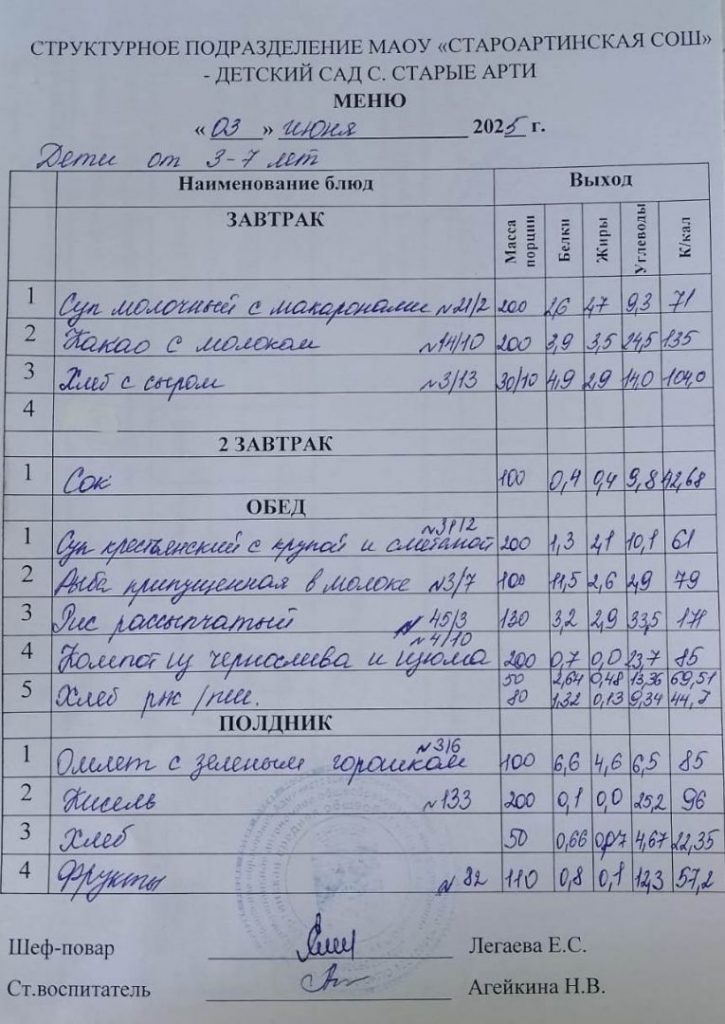 СТРУКТУРНОЕ ПОДРАЗДЕЛЕНИЕ МАОУ «СТАРОАРТИНСКАЯ СОШ»
- ДЕТСКИЙ САД С. СТАРЫЕ АРТИ
МЕНЮ
« 03 » июня 2025 г.
Дети от 3-7 лет
Наименование блюд Выход
ЗАВТРАК Масса порции Белки Жиры Углеводы К/кал
1 Суп молочный с макаронами №21/2 200 2,6 2,7 9,3 71
2 Какао с молоком №14/10 200 3,9 3,5 24,5 135
3 Хлеб с сыром №3/13 30/10 4,9 2,9 14,0 104,0
4
2 ЗАВТРАК
1 Сок 100 0,4 0,4 9,8 42,68
ОБЕД
1 Суп крестьянский с крупой и сметаной №31/2 200 1,3 2,1 10,1 61
2 Рыба припущенная в молоке №3/7 100 11,5 2,6 2,9 79
3 Рис рассыпчатый № 45/3 130 3,2 2,9 33,5 171
4 Компот из чернослива и изюма №4/10 200 0,7 0,0 23,7 85
5 Хлеб рж/пш. 50 2,64 0,48 13,36 69,51
80 1,32 0,13 9,34 44,7
ПОЛДНИК
1 Омлет с зеленым горошком №316 100 6,6 4,6 6,5 85
2 Кисель №133 200 0,1 0,0 25,2 96
3 Хлеб 50 0,66 0,07 4,67 22,35
4 Фрукты № 82 110 0,8 0,1 12,3 57,2
Шеф-повар Легаева Е.С.
Ст.воспитатель Агейкина Н.В.